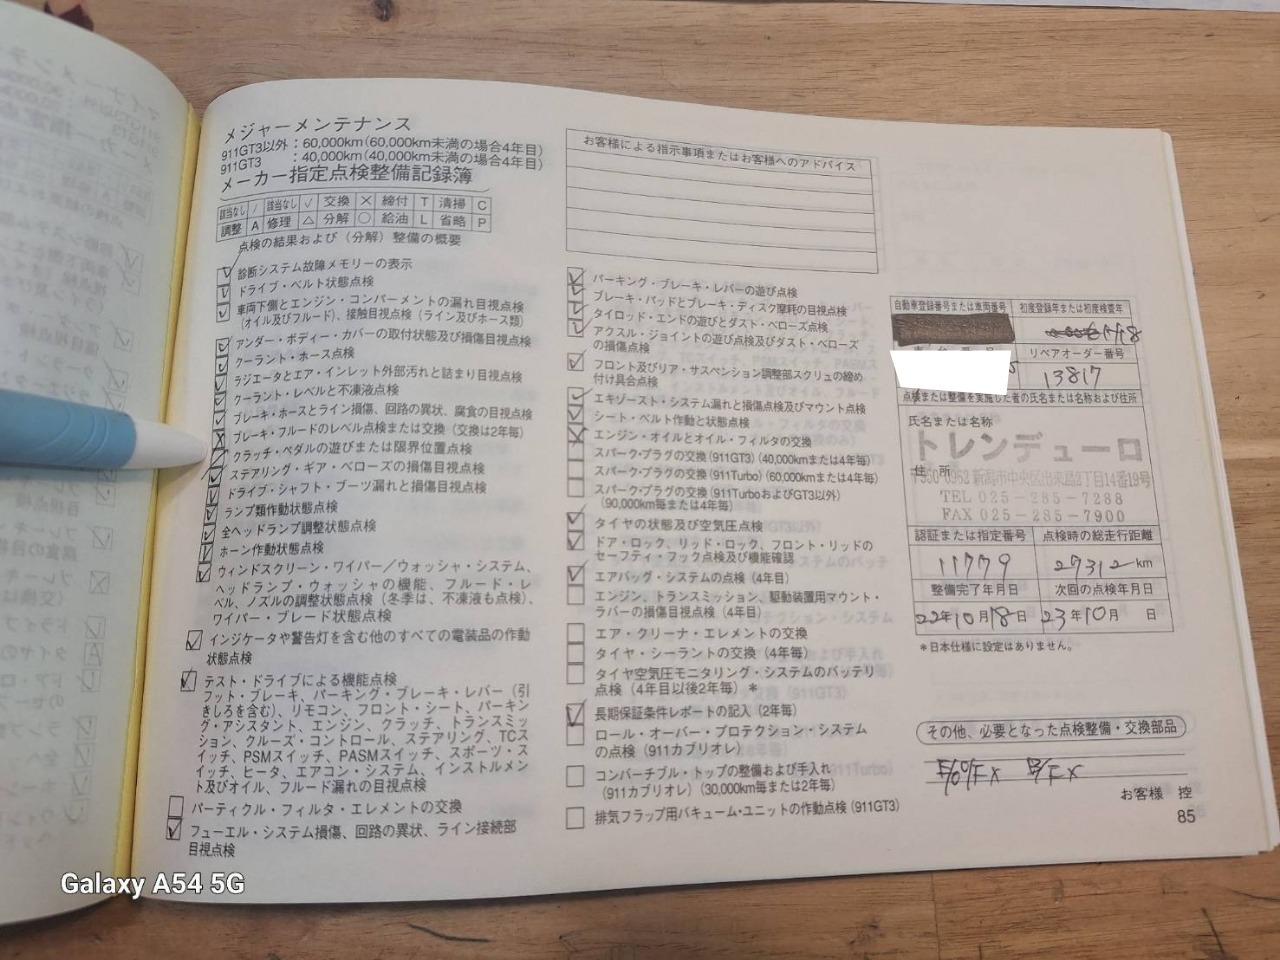 メジャーメンテナンス
911GT3以外：60,000km(60,000km未満の場合4年目)
911GT3　　：40,000km(40,000km未満の場合4年目)
メーカー指定点検整備記録簿
該当なし / 該当なし ✓ 交換 × 締付 T 清掃 C
調整 A 修理 △ 分解 ○ 給油 L 省略 P
点検の結果および（分解）整備の概要
診断システム故障メモリーの表示
ドライブ・ベルト状態点検
車両下側とエンジン・コンパーメントの漏れ目視点検
(オイル及びフルード)、接触目視点検（ライン及びホース類）
アンダー・ボディー・カバーの取付状態及び損傷点検
クーラント・ホース点検
ラジエータとエア・インレット外部汚れと詰まり目視点検
クーラント・レベルと不凍液点検
ブレーキ・ホースとライン損傷、回路の異状、腐食の目視点検
ブレーキ・フルードのレベル点検または交換（交換は2年毎）
クラッチ・ペダルの遊びまたは限界位置点検
ステアリング・ギア・ベローズの損傷目視点検
ドライブ・シャフト・ブーツ漏れと損傷目視点検
ランプ類作動状態点検
全ヘッドランプ調整状態点検
ホーン作動状態点検
ウィンドスクリーン・ワイパー／ウォッシャ・システム、
ヘッドランプ・ウォッシャの機能、フルード・レ
ベル、ノズルの調整状態点検（冬季は、不凍液も点検）、
ワイパー・ブレード状態点検
インジケータや警告灯を含む他のすべての電装品の作動
状態点検
テスト・ドライブによる機能点検
フット・ブレーキ、パーキング・ブレーキ・レバー（引
きしろを含む）、リモコン、フロント・シート、パーキン
グ・アシスタント、エンジン、クラッチ、トランスミッ
ション、クルーズ・コントロール、ステアリング、TCス
イッチ、PSMスイッチ、PASMスイッチ、スポーツ・ス
イッチ、ヒータ、エアコン・システム、インストルメン
ト及びオイル、フルード漏れの目視点検
パーティクル・フィルタ・エレメントの交換
フューエル・システム損傷、回路の異状、ライン接続部
目視点検
お客様による指示事項またはお客様へのアドバイス
パーキング・ブレーキ・レバーの遊び点検
ブレーキ・パッドとブレーキ・ディスク摩耗の目視点検
タイロッド・エンドの遊びとダスト・ベローズ点検
アクスル・ジョイントの遊び点検及びダスト・ベローズ
の損傷点検
フロント及びリア・サスペンション調整部スクリュの締め
付け具合点検
エキゾースト・システム漏れと損傷点検及びマウント点検
シート・ベルト作動と状態点検
エンジン・オイルとオイル・フィルタの交換
スパーク・プラグの交換 (911GT3) (40,000kmまたは4年毎)
スパーク・プラグの交換 (911Turbo) (60,000kmまたは4年毎)
スパーク・プラグの交換 (911TurboおよびGT3以外)
(90,000km毎または4年毎)
タイヤの状態及び空気圧点検
ドア・ロック、リッド・ロック、フロント・リッドの
セーフティ・フック点検及び機能確認
エアバッグ・システムの点検（4年目）
エンジン、トランスミッション、駆動装置用マウント・
ラバーの損傷目視点検（4年目）
エア・クリーナ・エレメントの交換
タイヤ・シーラントの交換（4年毎）
タイヤ空気圧モニタリング・システムのバッテリ
点検（4年目以後2年毎）＊
長期保証条件レポートの記入（2年毎）
ロール・オーバー・プロテクション・システム
の点検（911カブリオレ）
コンバーチブル・トップの整備および手入れ
（911カブリオレ）（30,000km毎または2年毎）
排気フラップ用バキューム・ユニットの作動点検 (911GT3)
自動車登録番号または車両番号 初度登録年または初度検査年
リペアオーダー番号
13817
点検または整備を実施した者の氏名または名称および住所
氏名または名称
トレンデューロ
住　所
〒950-0963 新潟市中央区出来島2丁目14番19号
TEL 025-285-7288
FAX 025-285-7900
認証または指定番号 点検時の総走行距離
11779 27312 km
整備完了年月日 次回の点検年月日
22年10月18日 23年10月 日
＊日本仕様に設定はありません。
その他、必要となった点検整備・交換部品
E/O/F× B/F×
お客様　控
85
Galaxy A54 5G